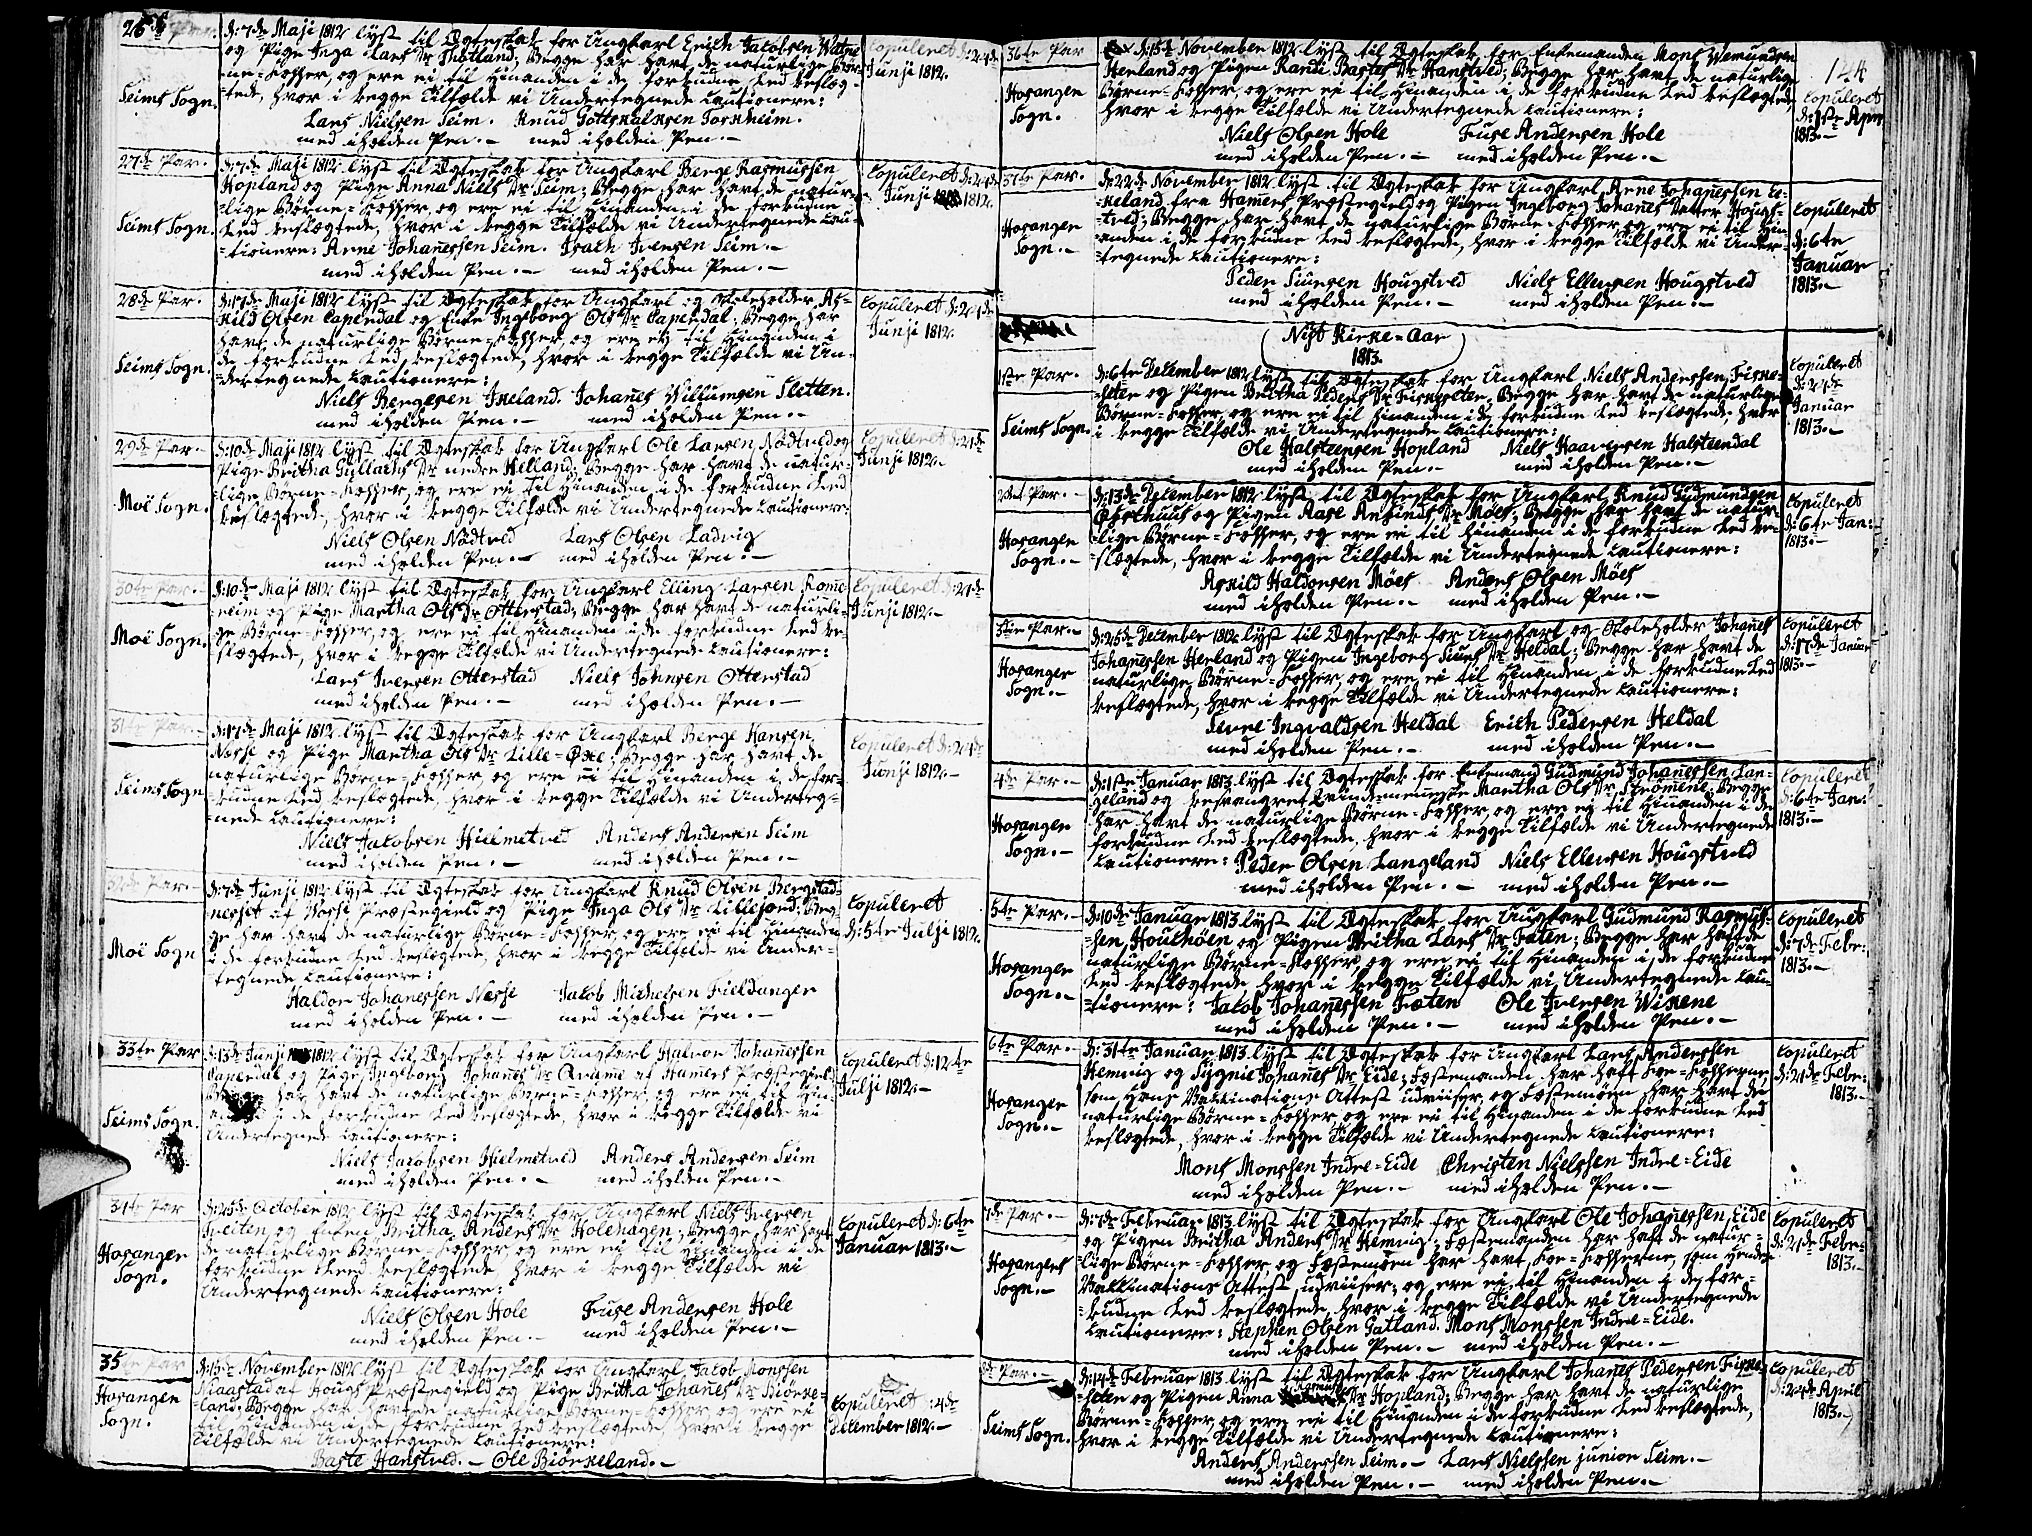 26de Par.
d: 7de Maji 1812 lyst til Ægteskab for Ungkarl Erich Jacobsen Watne
og Pige Inga Lars Dr Hotland; Begge har havt de naturlige Bör-
ne-Kopper, og ere ei til hinanden i de forbudne Led beslæg-
tede, hvor i begge Tilfælde vi Undertegnede Cautionere:
Lars Nielsen Seim. Knud Gottskalksen Torkheim.
med iholden Pen.- med iholden Pen.-
Seims Sogn.
Copuleret d: 24de
Junji 1812.
27de Par.
d: 7de Maji 1812 lyst til Ægteskab for Ungkarl Berge Rasmussen
Hopland og Pige Anna Niels Dr Seim; Begge har havt de natur-
lige Börne-Kopper, og ere ei til hinanden i de forbudne
Led beslægtede, hvor i begge Tilfælde vi Undertegnede Cau-
tionere: Arne Johanessen Seim. Isach Iversen Seim.-
med iholden Pen.- med iholden Pen.-
Seims Sogn.
Copuleret d: 24de
Junji 1812.
28de Par.
d: 17de Maji 1812 lyst til Ægteskab for Ungkarl og Skoleholder As-
kild Olsen Capendal og Enke Ingeborg Ols Dr Capendal; Begge har
havt de naturlige Börne-Kopper, og ere ei til hinanden i
de forbudne Led beslægtede, hvor i begge Tilfælde vi Un-
dertegnede Cautionere:
Niels Bergesen Ikeland. Johanes Willumsen Sletten.
med iholden Pen.- med iholden Pen.-
Seims Sogn.
Copuleret d: 24de
Junji 1812.
29de Par.
d: 10de Maji 1812 lyst til Ægteskab for Ungkarl Ole Larsen Nödtved og
Pige Britha Gullachs Dr nedre Helland; Begge har havt de natur-
lige Börne-Kopper, og ere ei til hinanden i de forbudne Led
beslægtede, hvor i begge Tilfælde vi Undertegnede Cautionere:
Niels Olsen Nödtved Lars Olsen Ladvig
med iholden Pen.- med iholden Pen.-
Moe Sogn.
Copuleret d: 21de
Junji 1812.
30te Par.
d: 10de Maji 1812 lyst til Ægteskab for Ungkarl Elling Larsen Rome-
reim og Pige Martha Ols Dr Otterstad; Begge har havt de naturli-
ge Börne-Kopper, og ere ei til hinanden i de forbudne Led be-
slægtede, hvor i begge Tilfælde vi Undertegnede Cautionere:
Lars Iversen Otterstad Niels Johnsen Otterstad
med iholden Pen.- med iholden Pen.-
Moe Sogn.
Copuleret d: 21de
Junji 1812.-
31te Par.
d: 17de Maji 1812 lyst til Ægteskab for Ungkarl Berge Hansen
Nesse og Pige Martha Ols Dr Lille-Oxe; Begge har havt de
naturlige Börne-Kopper, og ere ei til hinanden i de for-
budne Led beslægtede, hvor i begge Tilfælde vi Underteg-
nede Cautionere:
Niels Jacobsen Hielmetved Anders Andersen Seim
med iholden Pen.- med iholden Pen.-
Seims Sogn
Copuleret d: 24de
Junji 1812.-
32de Par.
d: 7de Junji 1812 lyst til Ægteskab for Ungkarl Knud Olsen Bergstad-
nesset af Wosse Præstegield og Pige Inga Ols Dr Lillejord; Beg-
ge har havt de naturlige Börne-Kopper, og ere ei til hinanden
i de forbudne Led beslægtede, hvor i begge Tilfælde vi Under-
tegnede Cautionere:
Haldor Johanessen Nesse Jacob Michelsen Fieldanger
med iholden Pen.- med iholden Pen.-
Moe Sogn
Copuleret
d: 5te Julji 1812.
33te Par
d: 13de Junji 1812 lyst til Ægteskab for Ungkarl Halvor Johanessen
Capendal og Pige Ingeborg Johanes Dr Qvame af Hamers Præstegield
Begge har havt de naturlige Börne-Kopper, og ere ei til hin-
i de forbudne Led beslægtede, hvor i begge Tilfælde vi
Undertegnede Cautionere:
Niels Jacobsen Hielmetved Anders Andersen Seim
med iholden Pen.- med iholden Pen.-
Seims Sogn.
Copuleret d: 12te
Julji 1812.-
34te Par
d: 25de October 1812 lyst til Ægteskab for Ungkarl Niels Iversen
Treiten og Enken Britha Anders Dr Holehagen; Begge har havt
de naturlige Börne-Kopper, og ere ei til hinanden i de
forbudne Leed beslægtede, hvor i begge Tilfælde vi
Undertegnede Cautionere:
Niels Olsen Hole Fuse Andersen Hole
med iholden Pen.- med iholden Pen.-
Hosanger
Sogn.
Copuleret d: 6te
Januar 1813.-
35te Par
d: 15de November 1812 lyst til Ægteskab for Ungkarl Jacob Monssen
Niaastad af Hougs Præstegield og Pige Britha Johanes Dr Biörke-
land; Begge har havt de naturlige Börne-Kopper, og ere ei
til hinanden i de forbudne Led beslægtede, hvor i begge
Tilfælde vi Undertegnede Cautionere:
Baste Hanstved.- Ole Biörkeland.-
Hosanger
Sogn.
Copuleret d: 4de
December 1812.-
144
36te Par
d: 15de November 1812 lyst til Ægteskab for Enkemanden Mons Wemundsen
Herland og Pigen Randi Bastes Dr Hanstved; Begge har havt de naturlige
Börne-Kopper, og ere ei til hinanden i de forbudne Led beslægtede,
hvor i begge Tilfælde vi Undertegnede Cautionere:
Niels Olsen Hole Fuse Andersen Hole
med iholden Pen.- med iholden Pen.-
Hosanger
Sogn.
Copuleret
d: 1ste April
1813.-
37te Par.
d: 22de November 1812 lyst til Ægteskab for Ungkarl Arne Johanessen Ee-
keland fra Hamers Præstegield og Pigen Ingeborg Johanes Datter Hougs-
tved; Begge har havt de naturlige Börne-Kopper, og ere ei til hin-
anden i de forbudne Led beslægtede, hvor i begge Tilfælde vi Under-
tegnede Cautionere:
Peder Siursen Hougstved Niels Ellensen Hougstved
med iholden Pen.- med iholden Pen.-
Hosanger
Sogn.-
Copuleret
d: 6te
Januar
1813.-
Nyt Kirke-Aar
1813.
1ste Par.
d: 6te December 1812 lyst til Ægteskab for Ungkarl Niels Anderssen Fixe-
seter og Pigen Britha Peders Dr Fixeseter; Begge har havt de naturlige
Börne-Kopper, og ere ei til hinanden i de forbudne Led beslægtede, hvor
i begge Tilfælde vi Undertegnede Cautionere:
Ole Halsteensen Hopland Niels Haavorsen Halsteendal
med iholden Pen.- med iholden Pen.-
Seims Sogn.
Copuleret
d: 24de
Januar
1813.-
2det Par.
d: 13de December 1812 lyst til Ægteskab for Ungkarl Knud Gudmundsen
Opsthuus og Pigen Aase Arfinds Dr Möes; Begge har havt de natur-
lige Börne-Kopper, og ere ei til hinanden i de forbudne Led be-
slægtede, hvor i begge Tilfælde vi Undertegnede Cautionere:
Askild Haldorsen Möes Anders Olsen Möes
med iholden Pen.- med iholden Pen.-
Hosanger
Sogn.-
Copuleret
d: 6te Jan:
1813.-
3die Par.-
d: 26de December 1812 lyst til Ægteskab for Ungkarl og Skoleholder Johanes
Johanessen Herland og Pigen Ingeborg Siurs Dr Heldal; Begge har havt de
naturlige Börne-Kopper, og ere ei til hinanden i de forbudne Led
beslægtede, hvor i begge Tilfælde vi Undertegnede Cautionere:
Siure Ingvaldsen Heldal Erich Pedersen Heldal
med iholden Pen.- med iholden Pen.-
Hosanger
Sogn.-
Copuleret
d: 17de Januar
1813.-
4de Par.-
d: 1ste Januar 1813 lyst til Ægteskab for Enkemand Gudmund Johanessen Lan-
geland og besvangret Qvindemenneske Martha Ols Dr Strömene; Begge
har havt de naturlige Börne-Kopper, og ere ei til hinanden i de
forbudne Led beslægtede, hvor i begge Tilfælde vi Undertegnede
Cautionere: Peder Olsen Langeland Niels Ellensen Hougstved
med iholden Pen.- med iholden Pen.-
Hosanger
Sogn.-
Copuleret
d: 6te Jan:
1813.-
5te Par.-
d: 10de Januar 1813 lyst til Ægteskab for Ungkarl Gudmund Rasmus-
sen Houehöen og Pigen Britha Lars Dr Fæten; Begge har havt de
naturlige Börne-Kopper, og ere ei til hinanden i de forbudne
Led beslægtede, hvor i begge Tilfælde vi Undertegnede Cau-
tionere: Jacob Johanessen Fæten Ole Iversen Wikene
med iholden Pen.- med iholden Pen.-
Hosanger
Sogn.-
Copuleret
d: 7de Febr:
1813.-
6te Par.-
d: 31te Januar 1813 lyst til Ægteskab for Ungkarl Lars Anderssen
Hemnig og Sygnie Johanes Dr Eide; Fæstemanden har haft Koe-Kopperne
som hans Vaccinations Attest udviiser, og Fæstemöen har havt de
naturlige Börne-Kopper, og ere ei til hinanden i de forbudne Led
beslægtede, hvor i begge Tilfælde vi Undertegnede Cautionere:
Mons Monssen Indre-Eide Christen Nielssen Indre-Eide
med iholden Pen.- med iholden Pen.-
Hosanger
Sogn.-
Copuleret
d: 21de Febr:
1813.-
7de Par.-
d: 7de Februar 1813 lyst til Ægteskab for Ungkarl Ole Johanessen Eide
og Pigen Britha Anders Dr Hemnig; Fæstemanden har haft de natur-
lige Börne-Kopper, og Fæstemöen har havt Koe-Kopperne, som hendes
Vaccinations Attest udviiser, og ere ei til hinanden i de for-
budne Led beslægtede, hvor i begge Tilfælde vi Undertegnede
Cautionere: Stephen Olsen Gatland. Mons Monssen Indre-Eide.
med iholden Pen.- med iholden Pen.-
Hosangers
Sogn.-
Copuleret
d: 21de Febr:
1813.-
8de Par.-
d: 14de Februar 1813 lyst til Ægteskab for Ungkarl Johanes Pedersen Fixe-
seter og Pigen Anna Rasmus Dr Hopland; Begge har havt de naturlige
Börne-Kopper, og ere ei til hinanden i de forbudne Led beslægtede,
hvor i begge Tilfælde vi Undertegnede Cautionere:
Anders Anderssen Seim.- Lars Nielssen junior Seim.-
med iholden Pen.- med iholden Pen.-
Seims Sogn.
Copuleret
d: 24de April
1813.-